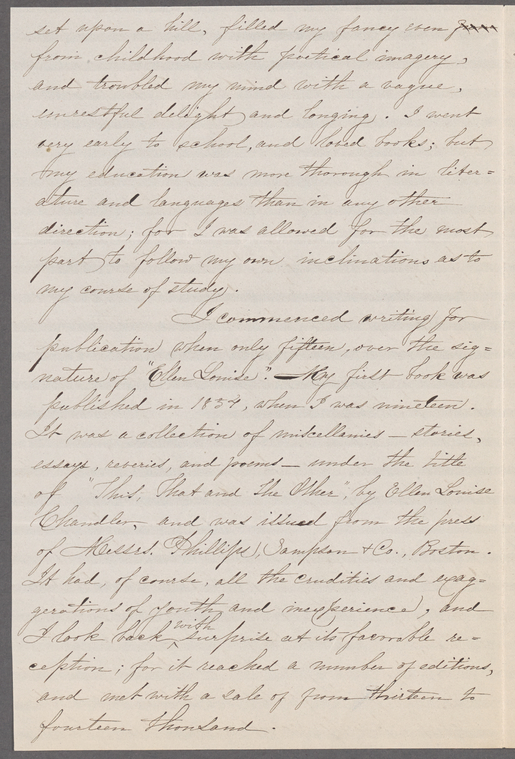 set upon a hill, filled my fancy even
from childhood with poetical imagery,
and troubled my mind with a vague,
unrestful delight and longing. I went
very early to school, and loved books; but
my education was more thorough in liter=
ature and languages than in any other
direction; for I was allowed for the most
part to follow my own inclinations as to
my course of study.
I commenced writing for
publication when only fifteen, over the sig=
nature of "Ellen Louise". — My first book was
published in 1854, when I was nineteen.
It was a collection of miscellanies — stories,
essays, reveries, and poems — under the title
of "This, That and The Other", by Ellen Louise
Chandler, and was issued from the press
of Messrs. Phillips, Sampson & Co., Boston.
It had, of course, all the crudities and exag=
gerations of youth and inexperience, and
I look back with surprise at its favorable re=
ception; for it reached a number of editions,
and met with a sale of from thirteen to
fourteen thousand.